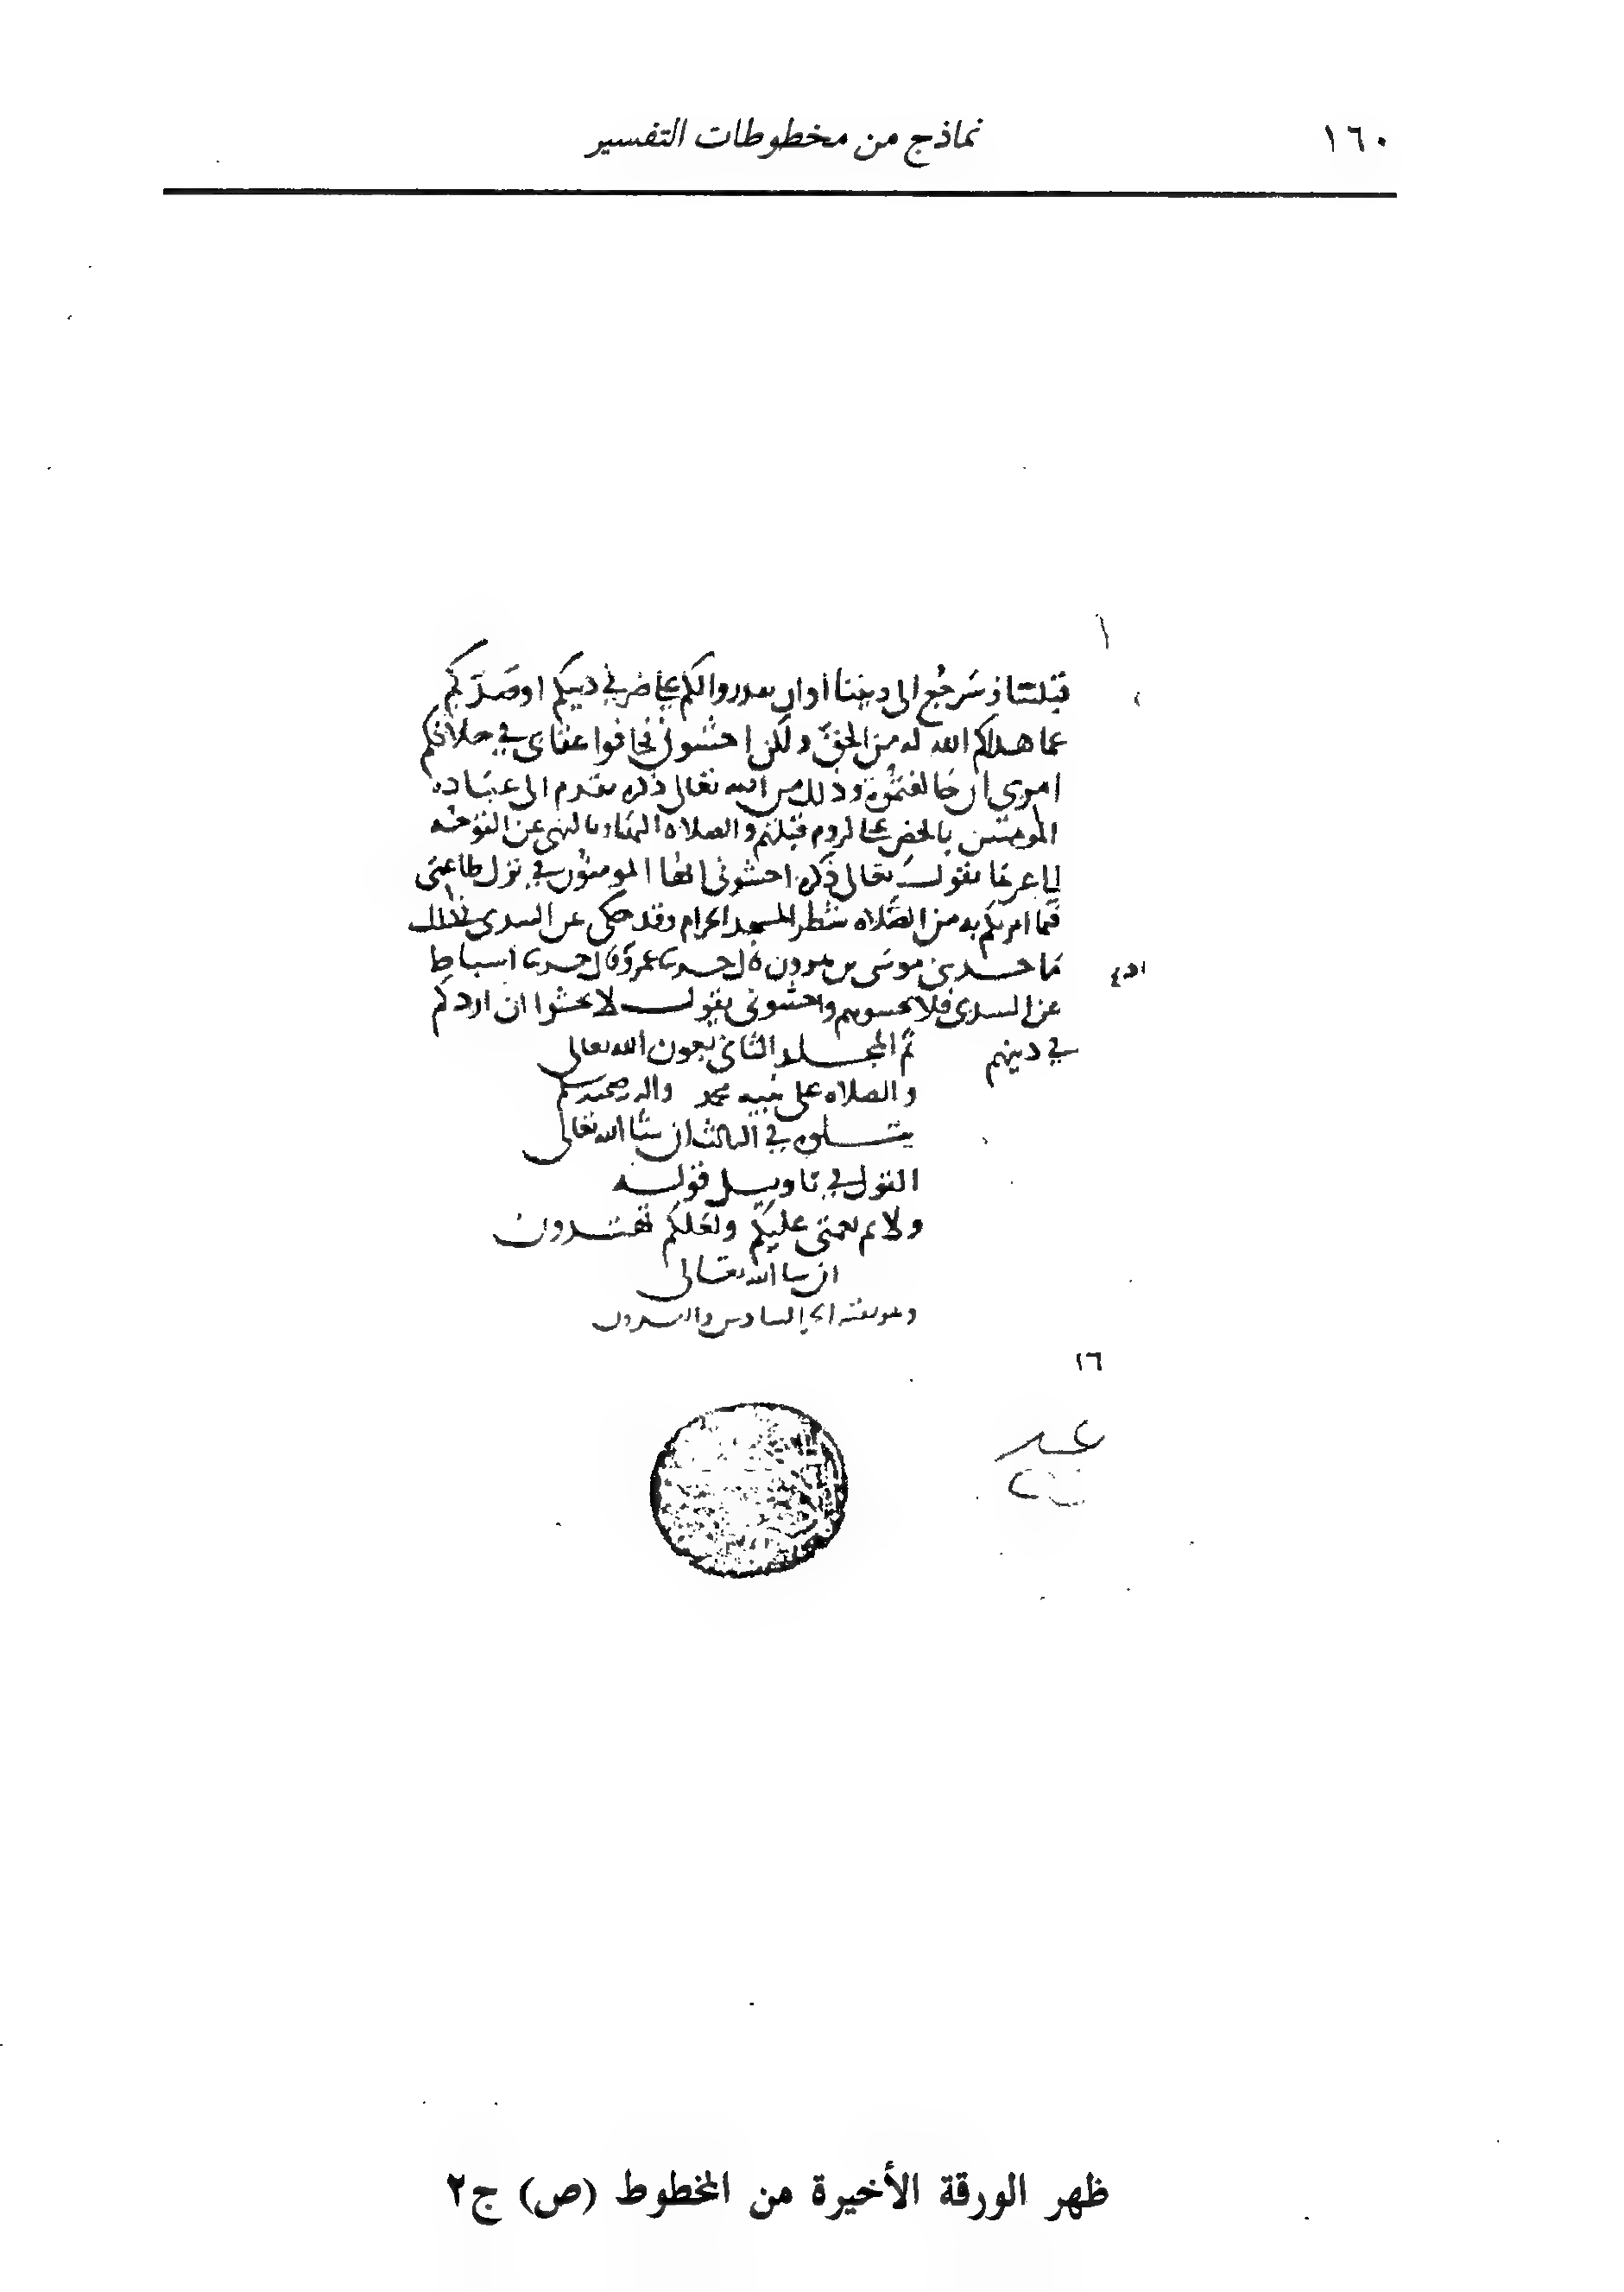 ١٦٠
نماذج من مخطوطات التفسير
قبلتنا وسيرجع الى ديننا او ان يقدروا لكم على ضر في دينكم او صدكم
عما هداكم الله له من الحق ولكن اخشوني فخافوا عقابي في خلافكم
امري ان خالفتموه وذلك من الله تعالى ذكره تقدم الى عباده
المومنين بالحض على لزوم قبلتهم والصلاه اليها وبالنهي عن التوجه
الى غيرها يقول تعالى ذكره اخشوني ايها المومنون في ترك طاعتي
فيما امرتكم به من الصلاه شطر المسجد الحرام وقد حكي عن السدي في ذلك
ما حدثني موسى بن هرون قال حدثنا عمرو قال حدثنا اسباط
عن السدي فلا تخشوهم واخشوني يقول لا تخشوا ان اردكم
في دينهم
تم المجلد الثاني بعون الله تعالى
والصلاه على نبيه محمد واله وصحبه وسلم
يتلوه في الثالث ان شا الله تعالى
القول في تاويل قوله
ولاتم نعمتي عليكم ولعلكم تهتدون
ان شا الله تعالى
١٦
ظهر الورقة الأخيرة من المخطوط (ص) ج٢